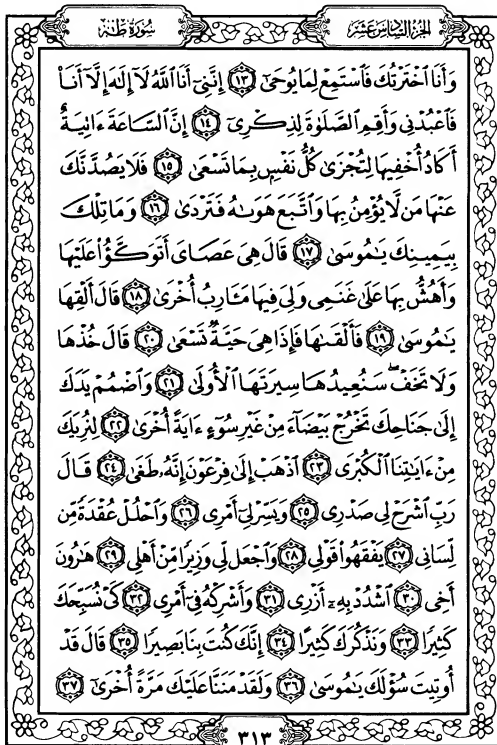 سُورَةُ طٰهٰ
الجُزْءُ السَّادِسَ عَشَرَ
وَأَنَا ٱخْتَرْتُكَ فَٱسْتَمِعْ لِمَا يُوحَىٰٓ ١٣ إِنَّنِىٓ أَنَا ٱللَّهُ لَآ إِلَٰهَ إِلَّآ أَنَا۠
فَٱعْبُدْنِى وَأَقِمِ ٱلصَّلَوٰةَ لِذِكْرِىٓ ١٤ إِنَّ ٱلسَّاعَةَ ءَاتِيَةٌ
أَكَادُ أُخْفِيهَا لِتُجْزَىٰ كُلُّ نَفْسٍۭ بِمَا تَسْعَىٰ ١٥ فَلَا يَصُدَّنَّكَ
عَنْهَا مَن لَّا يُؤْمِنُ بِهَا وَٱتَّبَعَ هَوَىٰهُ فَتَرْدَىٰ ١٦ وَمَا تِلْكَ
بِيَمِينِكَ يَٰمُوسَىٰ ١٧ قَالَ هِىَ عَصَاىَ أَتَوَكَّؤُا۟ عَلَيْهَا
وَأَهُشُّ بِهَا عَلَىٰ غَنَمِى وَلِىَ فِيهَا مَـَٔارِبُ أُخْرَىٰ ١٨ قَالَ أَلْقِهَا
يَٰمُوسَىٰ ١٩ فَأَلْقَىٰهَا فَإِذَا هِىَ حَيَّةٌ تَسْعَىٰ ٢٠ قَالَ خُذْهَا
وَلَا تَخَفْ ۖ سَنُعِيدُهَا سِيرَتَهَا ٱلْأُولَىٰ ٢١ وَٱضْمُمْ يَدَكَ
إِلَىٰ جَنَاحِكَ تَخْرُجْ بَيْضَآءَ مِنْ غَيْرِ سُوٓءٍ ءَايَةً أُخْرَىٰ ٢٢ لِنُرِيَكَ
مِنْ ءَايَٰتِنَا ٱلْكُبْرَى ٢٣ ٱذْهَبْ إِلَىٰ فِرْعَوْنَ إِنَّهُۥ طَغَىٰ ٢٤ قَالَ
رَبِّ ٱشْرَحْ لِى صَدْرِى ٢٥ وَيَسِّرْ لِىٓ أَمْرِى ٢٦ وَٱحْلُلْ عُقْدَةً مِّن
لِّسَانِى ٢٧ يَفْقَهُوا۟ قَوْلِى ٢٨ وَٱجْعَل لِّى وَزِيرًا مِّنْ أَهْلِى ٢٩ هَٰرُونَ
أَخِى ٣٠ ٱشْدُدْ بِهِۦٓ أَزْرِى ٣١ وَأَشْرِكْهُ فِىٓ أَمْرِى ٣٢ كَىْ نُسَبِّحَكَ
كَثِيرًا ٣٣ وَنَذْكُرَكَ كَثِيرًا ٣٤ إِنَّكَ كُنتَ بِنَا بَصِيرًا ٣٥ قَالَ قَدْ
أُوتِيتَ سُؤْلَكَ يَٰمُوسَىٰ ٣٦ وَلَقَدْ مَنَنَّا عَلَيْكَ مَرَّةً أُخْرَىٰٓ ٣٧
٣١٣